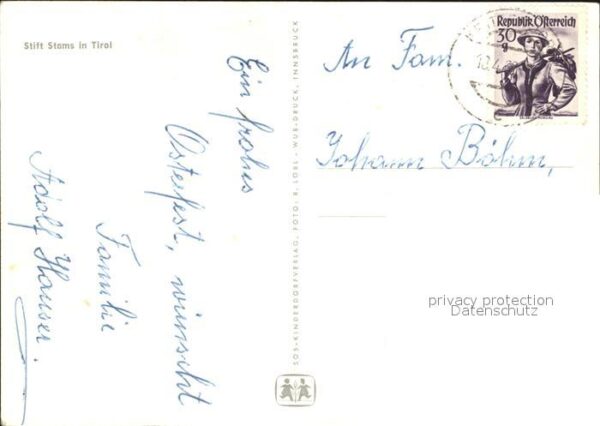 Stift Stams in Tirol
Ein frohes
Osterfest, wünscht
Familie
Adolf Hauser.
SOS-KINDERDORFVERLAG, FOTO: R. LÖBL - WUB-DRUCK, INNSBRUCK
An Fam.
Johann Böhm,
Republik Österreich
30
g
privacy protection
Datenschutz